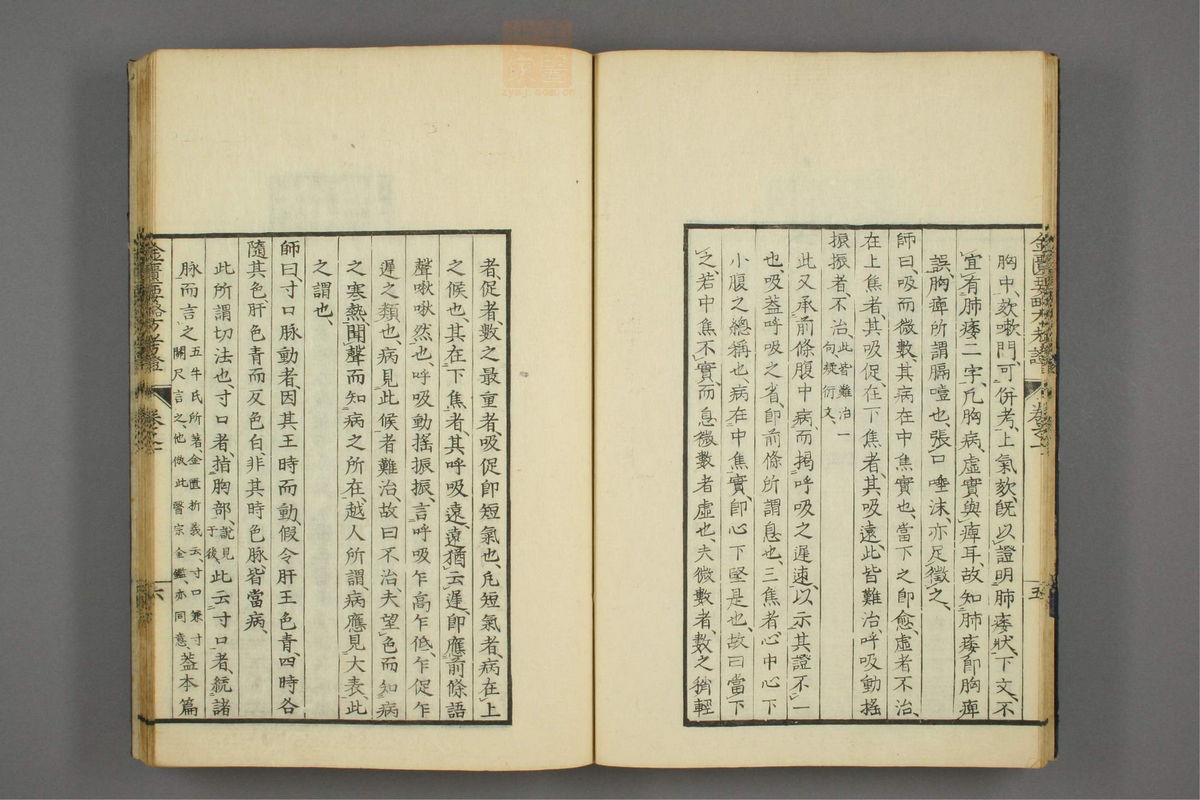 胸中、欬嗽門、可併考、上氣欬、既以證明肺痿狀、下文、不
宜有肺痿二字、凡胸病、虛實與痺耳、故知肺痿即胸痺
誤、胸痺所謂膈噎也、張口唾沫、亦足徵之、
師曰、吸而微數、其病在中焦實也、當下之即愈、虛者不治、
在上焦者、其吸促、在下焦者、其吸遠、此皆難治呼吸動搖
振振者、不治、此皆難治一句、疑衍文、
此又承前條腹中病、而揭呼吸之遲速、以示其證不一
也、吸蓋呼吸之省、即前條所謂息也、三焦者、心中心下
小腹之總稱也、病在中焦實、即心下堅是也、故曰當下
之、若中焦不實、而息微數者虛也、夫微數者、數之稍輕
者、促者、數之最重者、吸促即短氣也、凡短氣者、病在上
之候也、其在下焦者、其呼吸遠、遠猶云遲、即應前條語
聲啾啾然也、呼吸動搖振振、言呼吸乍高乍低、乍促乍
遲之類也、病見此候者難治、故曰不治、夫望色而知病
之寒熱、聞聲而知病之所在、越人所謂、病應見大表、此
之謂也、
師曰、寸口脉動者、因其王時而動、假令肝王色青、四時各
隨其色、肝色青而反色白、非其時色脉、皆當病、
此所謂切法也、寸口者、指胸部、說見于後、此云寸口者、統諸
脉而言之、五牛氏所著、金匱析義云、寸口兼寸關尺言之他倣此醫宗金鑑、亦同意、蓋本篇
金匱要略方考證
卷之一
五
金匱要略方考證
卷之一
六